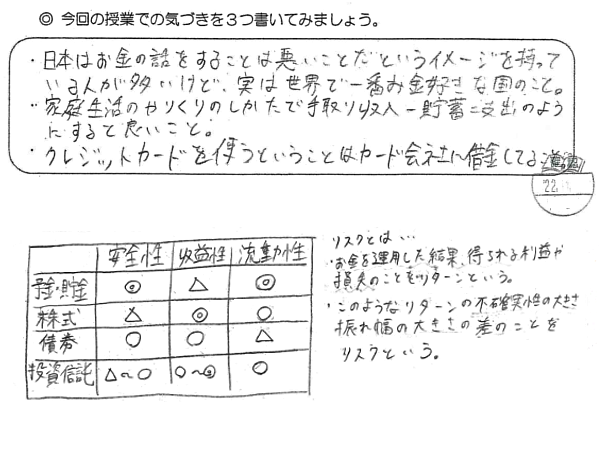 ◎ 今回の授業での気づきを3つ書いてみましょう。
・日本はお金の話をすることは悪いことだというイメージを持って
いる人が多いけど、実は世界で一番お金好きな国のこと。
・家庭生活のやりくりのしかたで手取り収入-貯蓄=支出のよう
にすると良いこと。
・クレジットカードを使うということはカード会社に借金してる
22
安全性 収益性 流動性
預金・貯金 ◎ △ ◎
株式 △ ◎ ○
債券 ○ ○ △
投資信託 △~○ ○~◎ ○
リスクとは…
・お金を運用した結果、得られる利益や
損失のことをリターンという。
・このようなリターンの不確実性の大きさ
振れ幅の大きさの差のことを
リスクという。